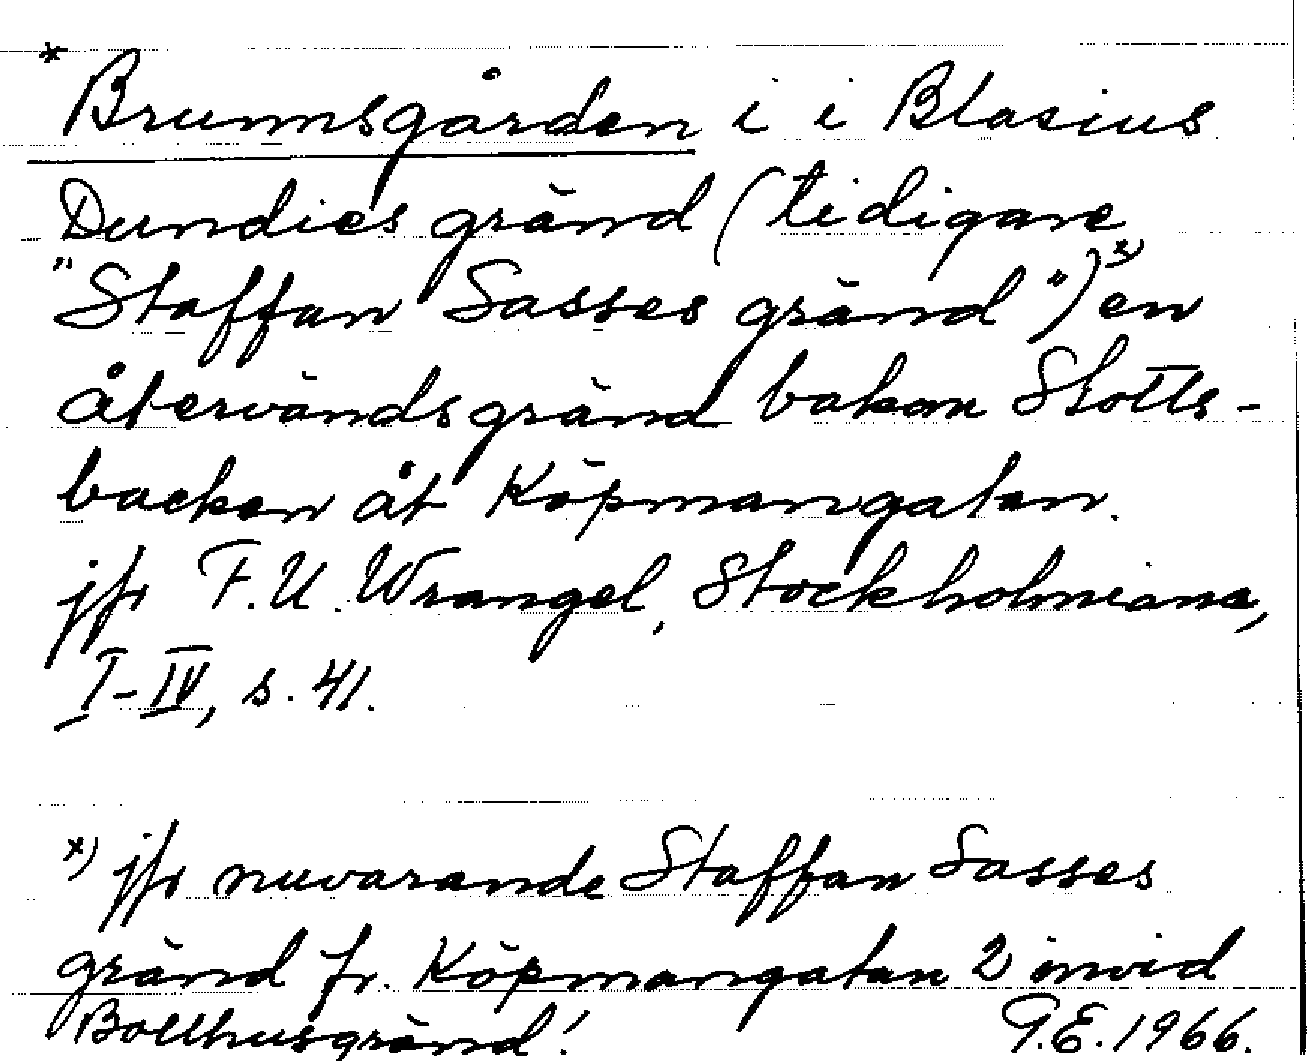 * Brunnsgården i i Blasius
Dundies gränd (tidigare
"Staffan Sasses gränd")x) en
återvändsgränd bakom Slotts-
backen åt Köpmangatan.
jfr F.U. Wrangel, Stockholmiana,
I-IV, s. 41.
x) jfr nuvarande Staffan Sasses
gränd fr. Köpmangatan 2 invid
Bollhusgränd! G.E. 1966.